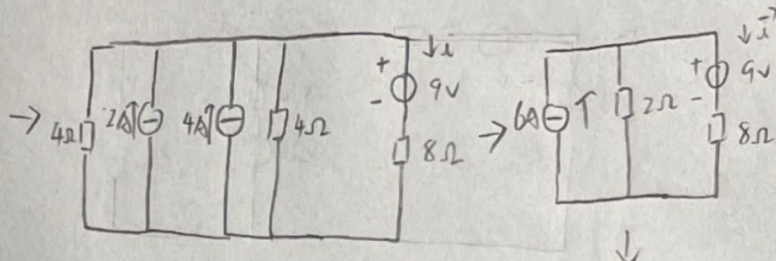 → 4Ω 2A↑ 4A↑ 4Ω + - 9V ↓i 8Ω
→ 6A ↑ 2Ω + - 9V ↓i 8Ω
↓